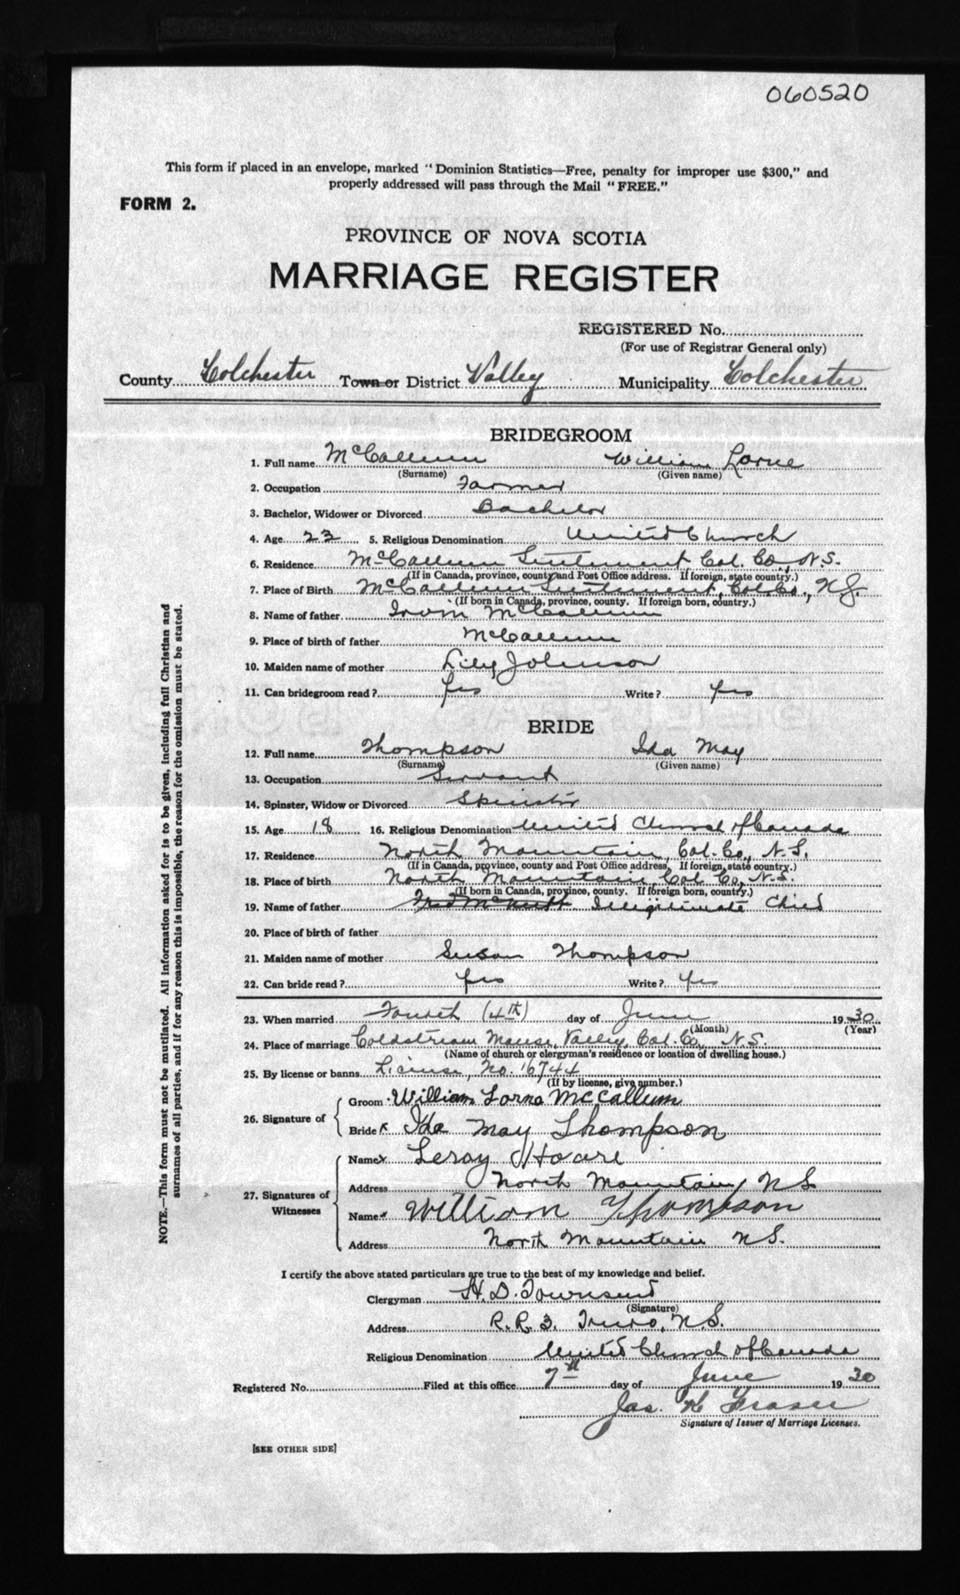 060520
This form if placed in an envelope, marked "Dominion Statistics—Free, penalty for improper use $300," and
properly addressed will pass through the Mail "FREE."
FORM 2.
PROVINCE OF NOVA SCOTIA
MARRIAGE REGISTER
REGISTERED No.
(For use of Registrar General only)
County Colchester Town or District Valley Municipality Colchester
BRIDEGROOM
1. Full name McCallum William Lorne
(Surname) (Given name)
2. Occupation Farmer
3. Bachelor, Widower or Divorced Bachelor
4. Age 23 5. Religious Denomination United Church
6. Residence McCallum Settlement, Col. Co., N.S.
(If in Canada, province, county and Post Office address. If foreign, state country.)
7. Place of Birth McCallum Settlement, Col. Co., N.S.
(If born in Canada, province, county. If foreign born, country.)
8. Name of father McCallum
9. Place of birth of father McCallum
10. Maiden name of mother Lily Johnson
11. Can bridegroom read? Yes Write? Yes
BRIDE
12. Full name Thompson Ida May
(Surname) (Given name)
13. Occupation Servant
14. Spinster, Widow or Divorced Spinster
15. Age 18 16. Religious Denomination United Church of Canada
17. Residence North Mountain, Col. Co., N.S.
(If in Canada, province, county and Post Office address. If foreign, state country.)
18. Place of birth North Mountain, Col. Co., N.S.
(If born in Canada, province, county. If foreign born, country.)
19. Name of father Illegitimate Child
20. Place of birth of father
21. Maiden name of mother Susan Thompson
22. Can bride read? Yes Write? Yes
23. When married Fourth (4th) day of June 1930
(Month) (Year)
24. Place of marriage Coldstream Manse, Valley, Col. Co., N.S.
(Name of church or clergyman's residence or location of dwelling house.)
25. By license or banns License, No. 16744
(If by license, give number.)
26. Signature of
Groom William Lorne McCallum
Bride x Ida May Thompson
27. Signatures of Witnesses
Name x Leroy Hoare
Address North Mountain, N.S.
Name x William Thompson
Address North Mountain N.S.
I certify the above stated particulars are true to the best of my knowledge and belief.
Clergyman H. D. Townsend
(Signature)
Address R.R. 3. Truro, N.S.
Religious Denomination United Church of Canada
Registered No. Filed at this office 7th day of June 1930
Jas. K Fraser
Signature of Issuer of Marriage Licenses.
[SEE OTHER SIDE]
NOTE.—This form must not be mutilated. All information asked for is to be given, including full Christian and
surnames of all parties, and if for any reason this is impossible, the reason for the omission must be stated.